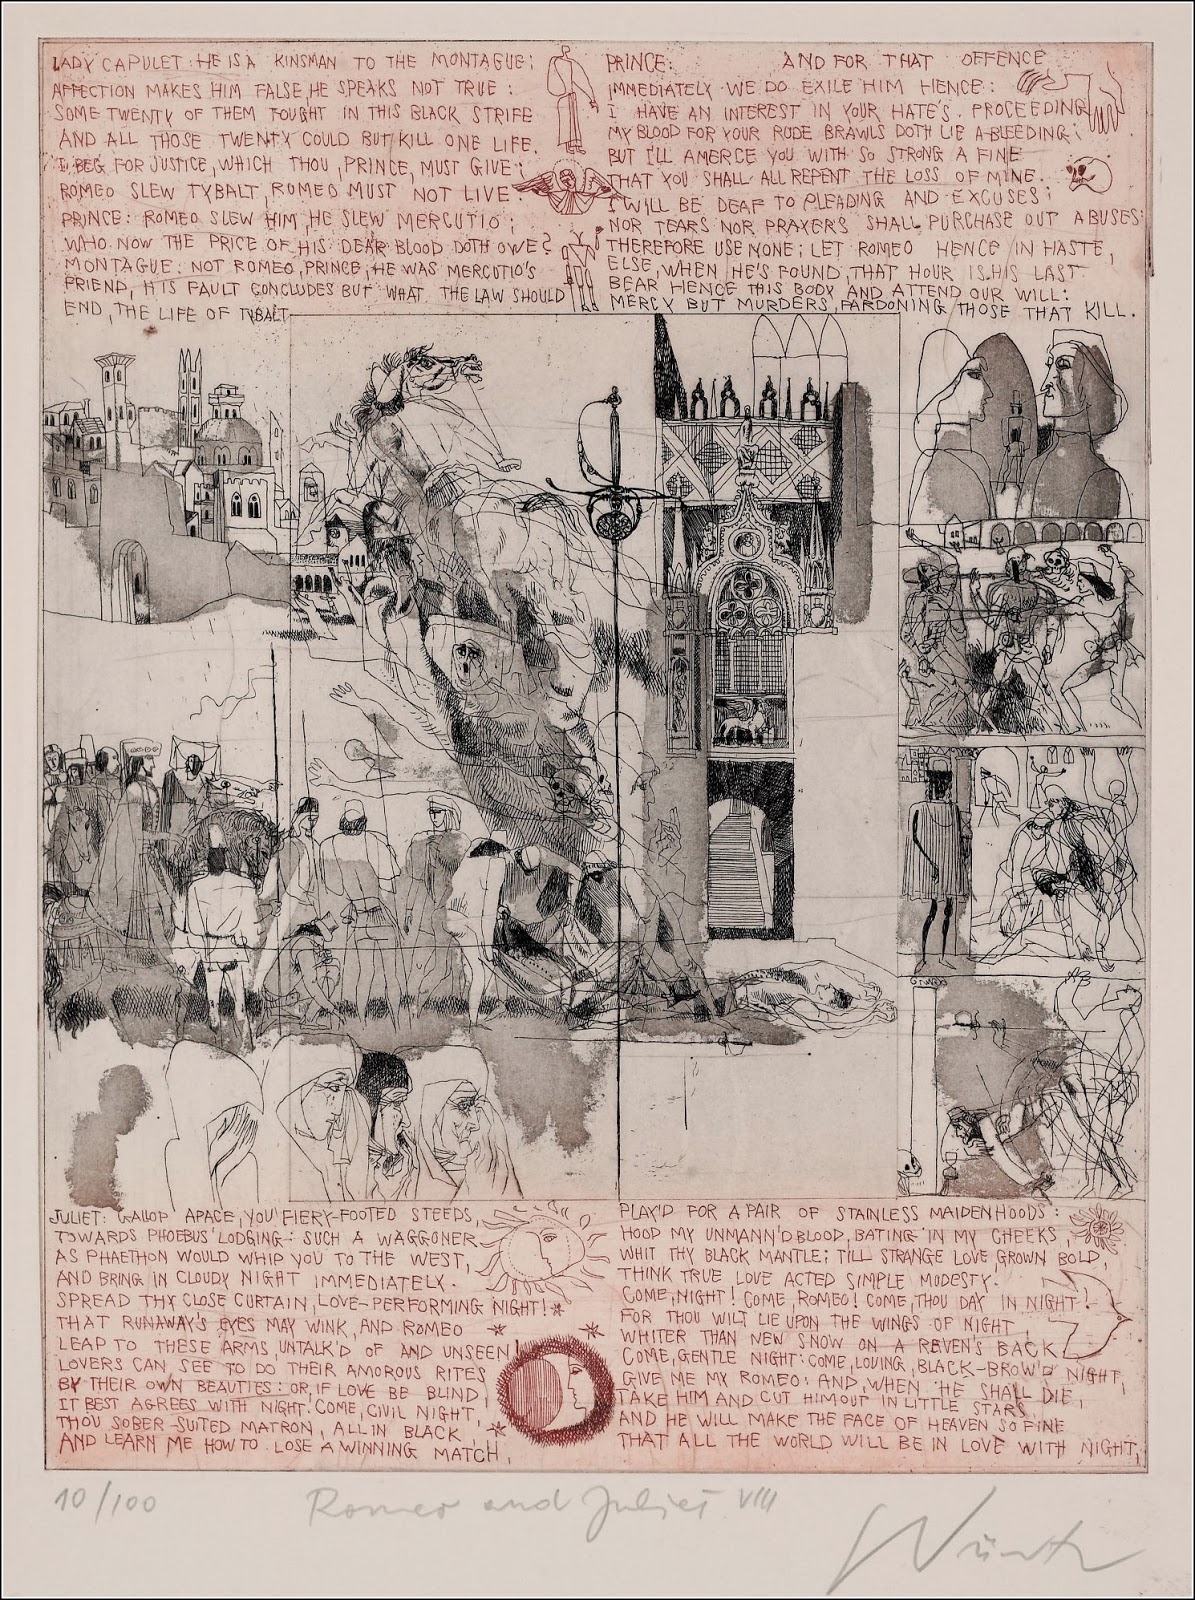 LADY CAPULET: HE IS A KINSMAN TO THE MONTAGUE;
AFFECTION MAKES HIM FALSE, HE SPEAKS NOT TRUE:
SOME TWENTY OF THEM FOUGHT IN THIS BLACK STRIFE
AND ALL THOSE TWENTY COULD BUT KILL ONE LIFE.
I BEG FOR JUSTICE, WHICH THOU, PRINCE, MUST GIVE;
ROMEO SLEW TYBALT, ROMEO MUST NOT LIVE.
PRINCE: ROMEO SLEW HIM, HE SLEW MERCUTIO;
WHO NOW THE PRICE OF HIS DEAR BLOOD DOTH OWE?
MONTAGUE: NOT ROMEO, PRINCE, HE WAS MERCUTIO'S
FRIEND, HIS FAULT CONCLUDES BUT WHAT THE LAW SHOULD
END, THE LIFE OF TYBALT.
PRINCE: AND FOR THAT OFFENCE
IMMEDIATELY WE DO EXILE HIM HENCE:
I HAVE AN INTEREST IN YOUR HATE'S PROCEEDING
MY BLOOD FOR YOUR RUDE BRAWLS DOTH LIE A-BLEEDING;
BUT I'LL AMERCE YOU WITH SO STRONG A FINE
THAT YOU SHALL ALL REPENT THE LOSS OF MINE.
I WILL BE DEAF TO PLEADING AND EXCUSES;
NOR TEARS NOR PRAYERS SHALL PURCHASE OUT ABUSES:
THEREFORE USE NONE; LET ROMEO HENCE IN HASTE,
ELSE, WHEN HE'S FOUND, THAT HOUR IS HIS LAST.
BEAR HENCE THIS BODY AND ATTEND OUR WILL:
MERCY BUT MURDERS, PARDONING THOSE THAT KILL.
JULIET: GALLOP APACE, YOU FIERY-FOOTED STEEDS,
TOWARDS PHOEBUS' LODGING: SUCH A WAGGONER
AS PHAETHON WOULD WHIP YOU TO THE WEST,
AND BRING IN CLOUDY NIGHT IMMEDIATELY.
SPREAD THY CLOSE CURTAIN, LOVE-PERFORMING NIGHT!
THAT RUNAWAY'S EYES MAY WINK, AND ROMEO
LEAP TO THESE ARMS, UNTALK'D OF AND UNSEEN!
LOVERS CAN SEE TO DO THEIR AMOROUS RITES
BY THEIR OWN BEAUTIES: OR, IF LOVE BE BLIND,
IT BEST AGREES WITH NIGHT. COME, CIVIL NIGHT,
THOU SOBER-SUITED MATRON, ALL IN BLACK,
AND LEARN ME HOW TO LOSE A WINNING MATCH,
PLAY'D FOR A PAIR OF STAINLESS MAIDENHOODS:
HOOD MY UNMANN'D BLOOD, BATING IN MY CHEEKS,
WHIT THY BLACK MANTLE; TILL STRANGE LOVE GROWN BOLD,
THINK TRUE LOVE ACTED SIMPLE MODESTY.
COME, NIGHT! COME, ROMEO! COME, THOU DAY IN NIGHT!
FOR THOU WILT LIE UPON THE WINGS OF NIGHT
WHITER THAN NEW SNOW ON A REVEN'S BACK
COME, GENTLE NIGHT: COME, LOVING, BLACK-BROW'D NIGHT,
GIVE ME MY ROMEO: AND, WHEN HE SHALL DIE,
TAKE HIM AND CUT HIM OUT IN LITTLE STARS
AND HE WILL MAKE THE FACE OF HEAVEN SO FINE
THAT ALL THE WORLD WILL BE IN LOVE WITH NIGHT,
10/100
Romeo and Juliet VIII